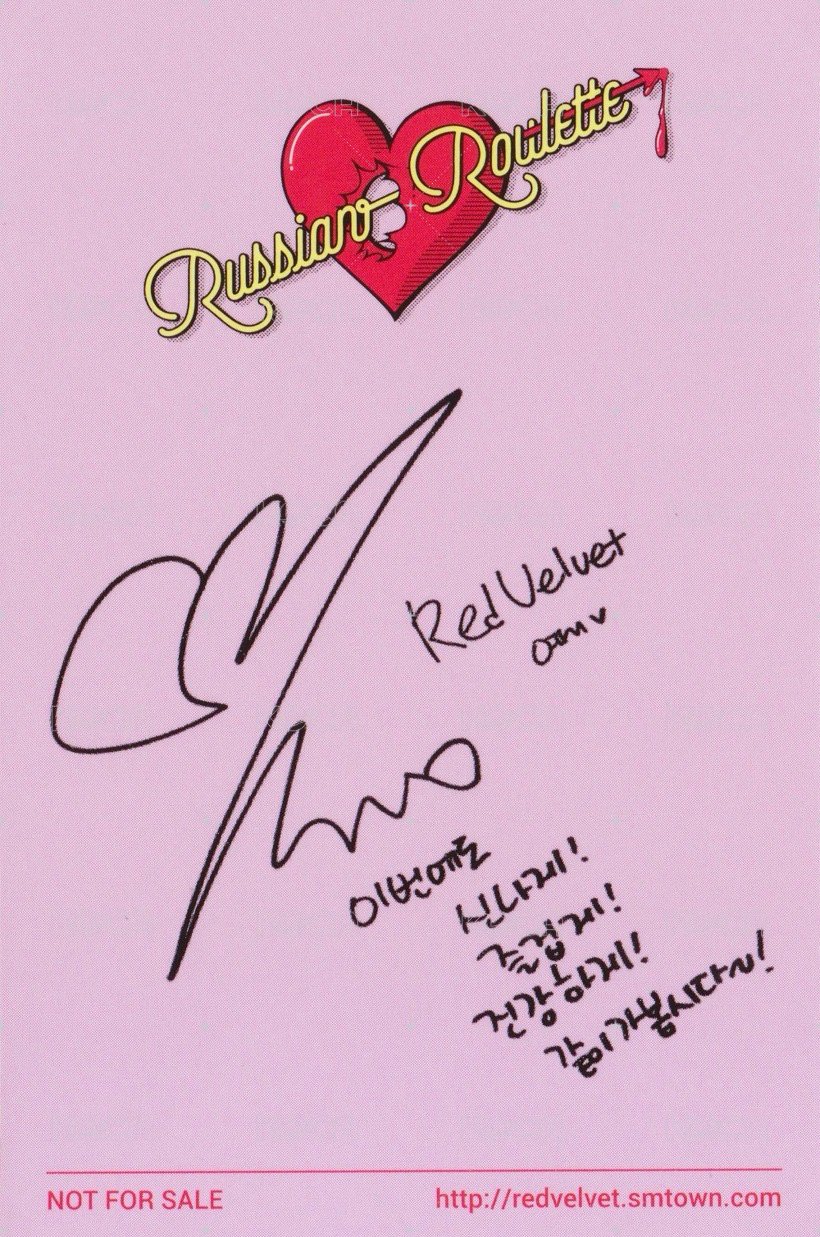 Russian Roulette
Red Velvet
이번에도
신나게!
즐겁게!
건강하게!
같이가봅시다~!
NOT FOR SALE
http://redvelvet.smtown.com